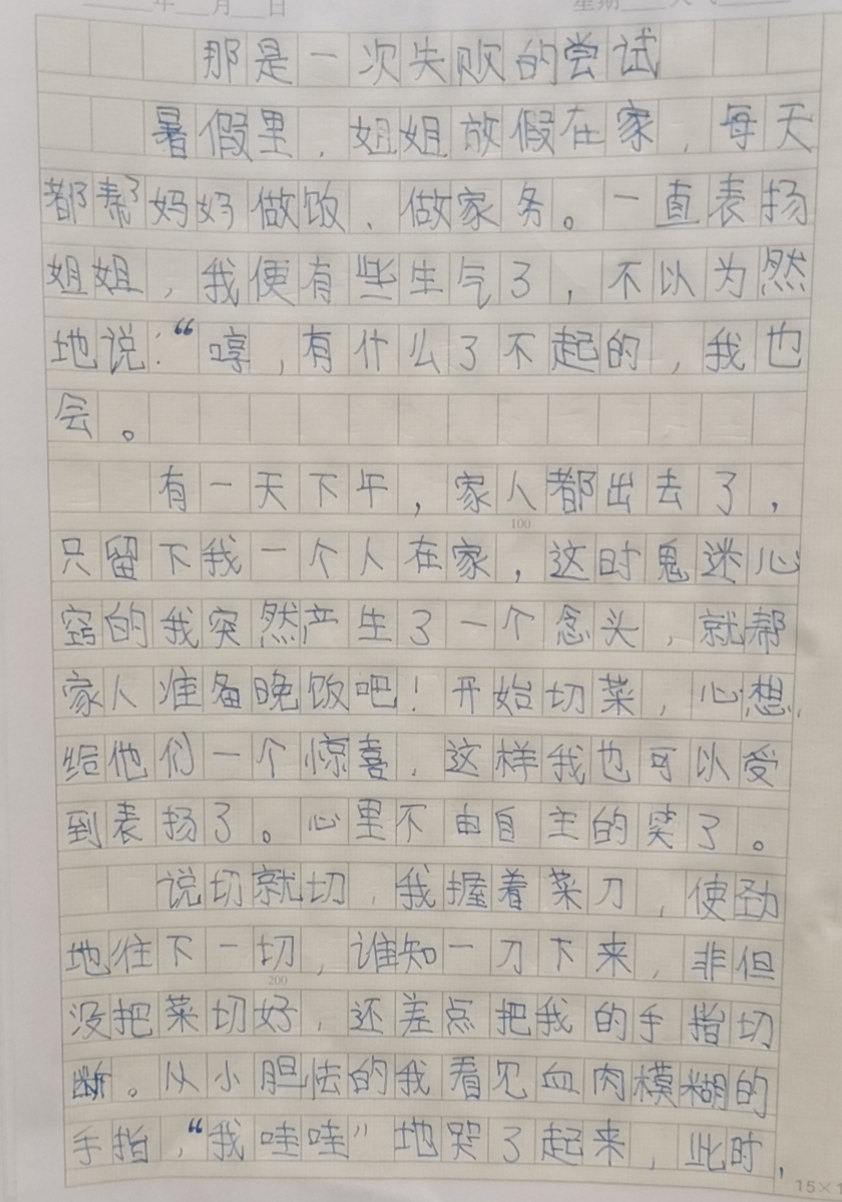 年 月 日 星期 天气
那是一次失败的尝试
暑假里，姐姐放假在家，每天
都帮妈妈做饭、做家务。一直表扬
姐姐，我便有些生气了，不以为然
地说：“哼，有什么了不起的，我也
会。
有一天下午，家人都出去了，
100
只留下我一个人在家，这时鬼迷心
窍的我突然产生了一个念头，就帮
家人准备晚饭吧！开始切菜，心想，
给他们一个惊喜，这样我也可以受
到表扬了。心里不由自主的笑了。
说切就切，我握着菜刀，使劲
地往下一切，谁知一刀下来，非但
200
没把菜切好，还差点把我的手指切
断。从小胆怯的我看见血肉模糊的
手指，“我哇哇”地哭了起来，此时，